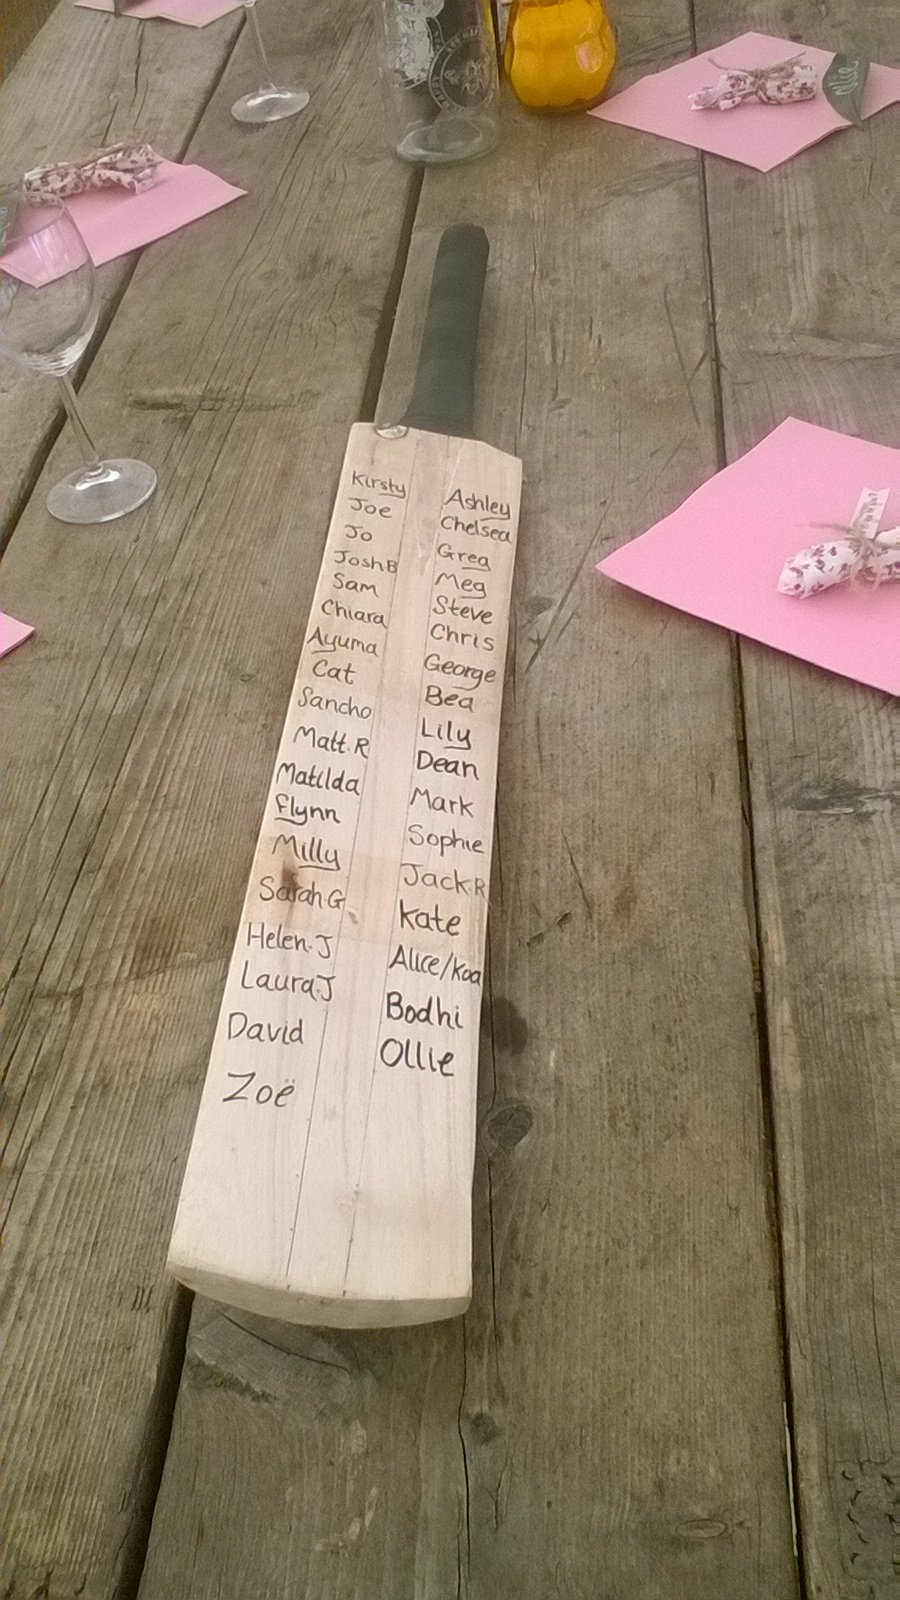 Kirsty
Joe
Jo
Josh B
Sam
Chiara
Ayuma
Cat
Sancho
Matt.R
Matilda
flynn
Milly
Sarah.G
Helen.J
Laura.J
David
Zoë
Ashley
Chelsea
Greg
Meg
Steve
Chris
George
Bea
Lily
Dean
Mark
Sophie
Jack.R
Kate
Alice/Koa
Bodhi
Ollie